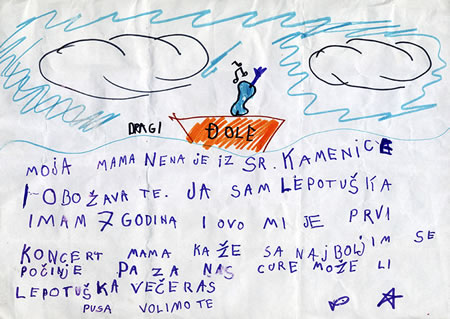 DRAGI ĐOLE
MOJA MAMA NENA JE IZ SR. KAMENICE
I OBOŽAVA TE. JA SAM LEPOTUŠKA
IMAM 7 GODINA I OVO MI JE PRVI
KONCERT MAMA KAŽE SA NAJBOLJIM SE
POČINJE PA ZA NAS CURE MOŽE LI
LEPOTUŠKA VEČERAS
PUSA VOLIMO TE